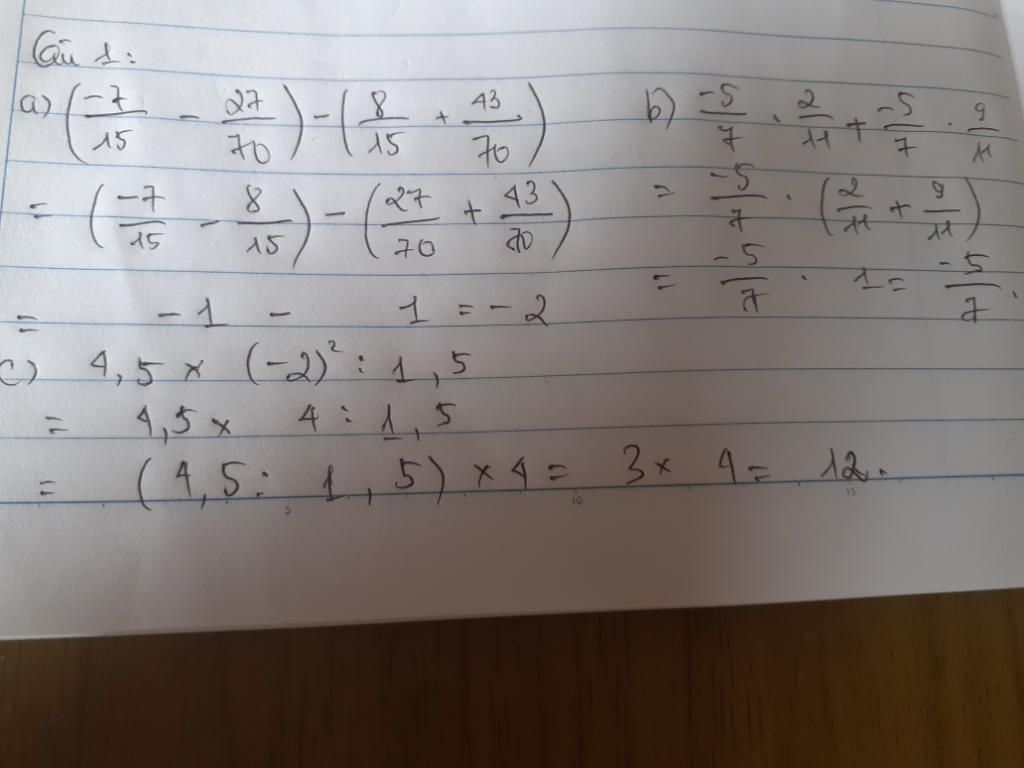 Câu 1:
a) (-7/15 - 27/70) - (8/15 + 43/70)
= (-7/15 - 8/15) - (27/70 + 43/70)
= -1 - 1 = -2
b) -5/7 . 2/11 + -5/7 . 9/11
= -5/7 . (2/11 + 9/11)
= -5/7 . 1 = -5/7.
c) 4,5 × (-2)² : 1,5
= 4,5 × 4 : 1,5
= (4,5 : 1,5) × 4 = 3 × 4 = 12.
5 10 15